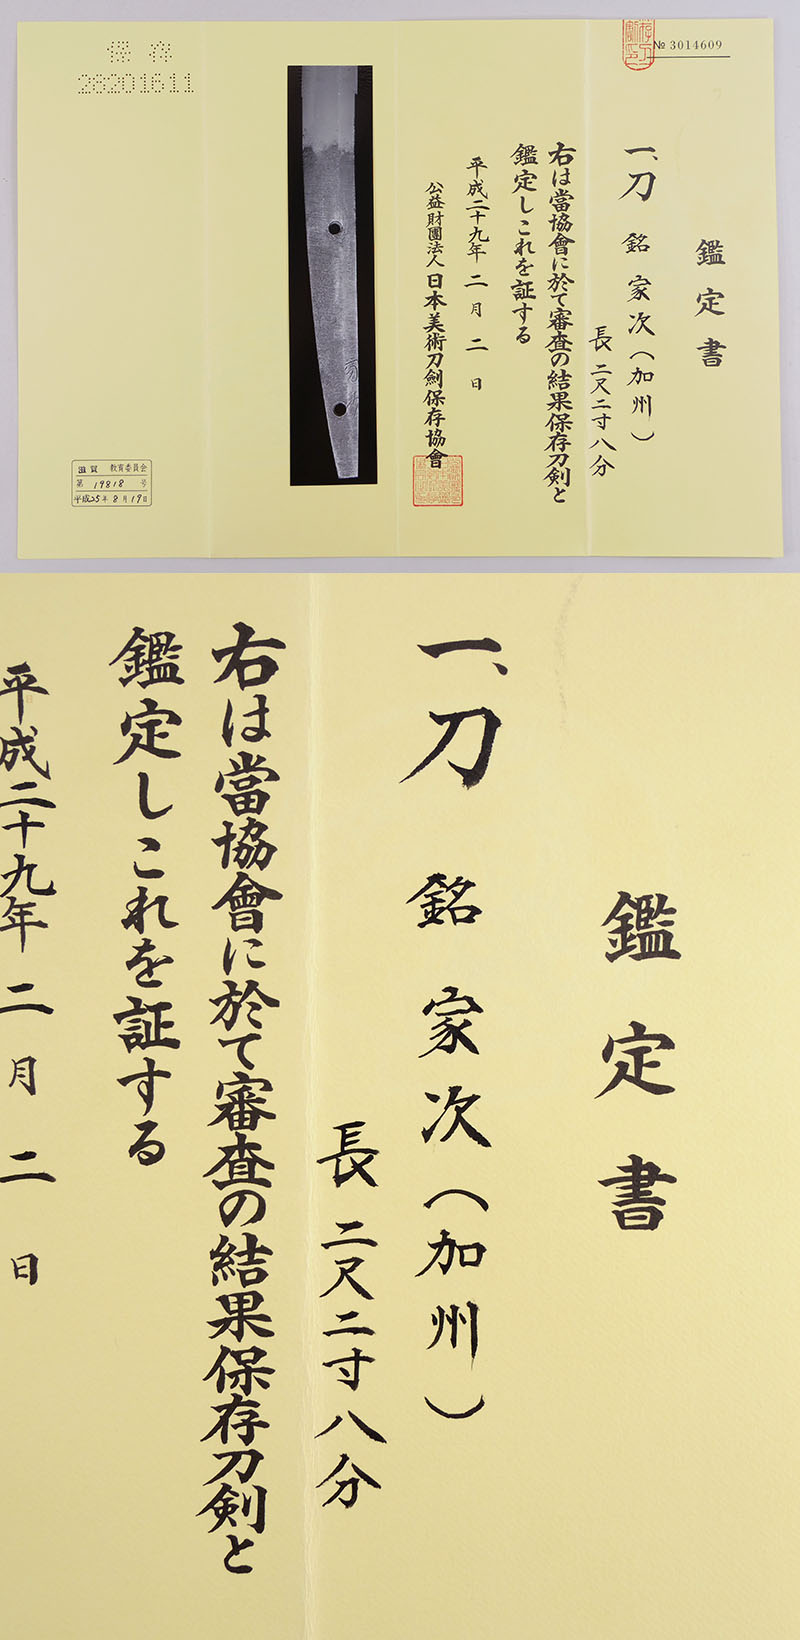 № 3014609
鑑定書
一、刀 銘 家次(加州)
長 二尺二寸八分
右は當協會に於て審査の結果保存刀剣と
鑑定しこれを証する
平成二十九年 二月 二日
公益財團法人 日本美術刀劍保存協會
保存
28201611
滋賀 教育委員会
第 19818 号
平成25年8月19日
鑑定書
一、刀 銘 家次(加州)
長 二尺二寸八分
右は當協會に於て審査の結果保存刀剣と
鑑定しこれを証する
平成二十九年 二月 二日